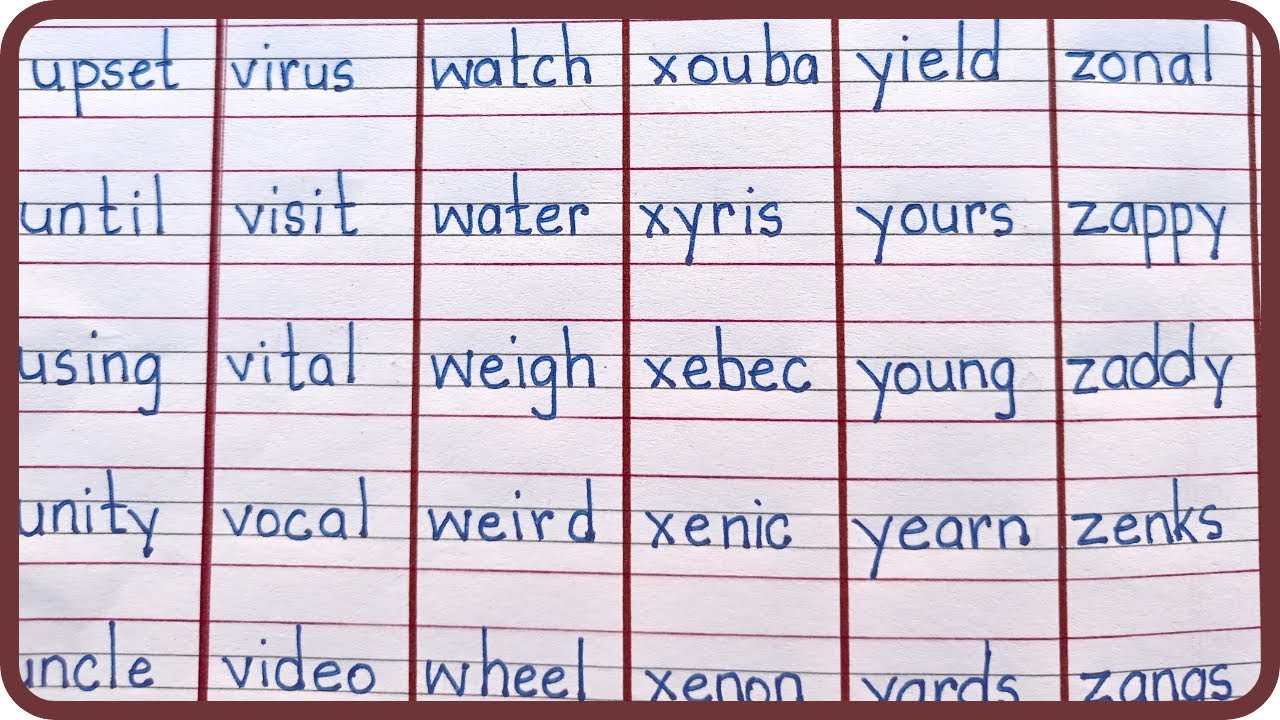 upset virus watch xouba yield zonal
until visit water xyris yours zappy
using vital weigh xebec young zaddy
unity vocal weird xenic yearn zenks
uncle video wheel xenon yards